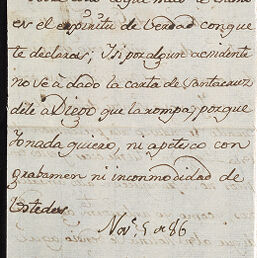 es el espiritu de Verdad con que
te declaras; I si por algun acsidente
no ve à dado la carta de Santacruz
dile à Diego que la rompa, porque
Yonada quiero, ni apetesco con
grabamen ni inconmodidad de
Ustedes.
Nov.e 5 de 86